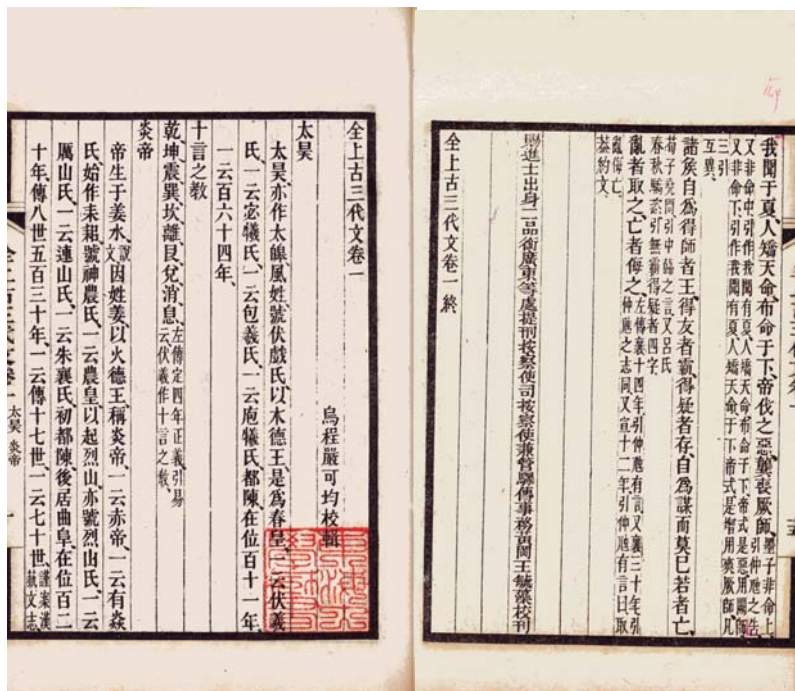 我聞于夏人矯天命、布命于下、帝伐之惡、龔喪厥師、墨子非命上引仲虺之告
又非命中引作我聞有夏人矯天命布命于下帝式是惡用闕師
又非命下引作我聞有夏人矯天命于下帝式是增用爽厥師凡
三引
互異、
諸矦自爲得師者王、得友者霸、得疑者存、自爲謀而莫已若者亡、
荀子堯問引中蘬之言又呂氏
春秋驕恣引無霸得疑者四字
亂者取之、亡者侮之、左傳襄十四年引仲虺有言又襄三十年引
仲虺之志同又宣十二年引仲虺有言曰取
亂侮亡、
葢約文、
賜進士出身二品銜廣東等處提刑按察使司按察使兼管驛傳事務黃岡王毓藻校刊
全上古三代文卷一終
全上古三代文卷一
烏程嚴可均校輯
太昊
太昊、亦作太皞、風姓、號伏戲氏、以木德王、是爲春皇、一云伏羲
氏、一云宓犧氏、一云包羲氏、一云庖犧氏、都陳、在位百十一年、
一云百六十四年、
十言之敎
乾坤震巽坎離艮兌消息、左傳定四年正義引易
云伏羲作十言之敎、
炎帝
帝生于姜水、說文因姓姜、以火德王、稱炎帝、一云赤帝、一云有焱
氏、始作耒耜、號神農氏、一云農皇、以起烈山、亦號烈山氏、一云
厲山氏、一云連山氏、一云朱襄氏、初都陳、後居曲阜、在位百二
十年、傳八世五百三十年、一云傳十七世、一云七十世、謹案漢
蓺文志、
全上古三代文卷一 太昊 炎帝 一